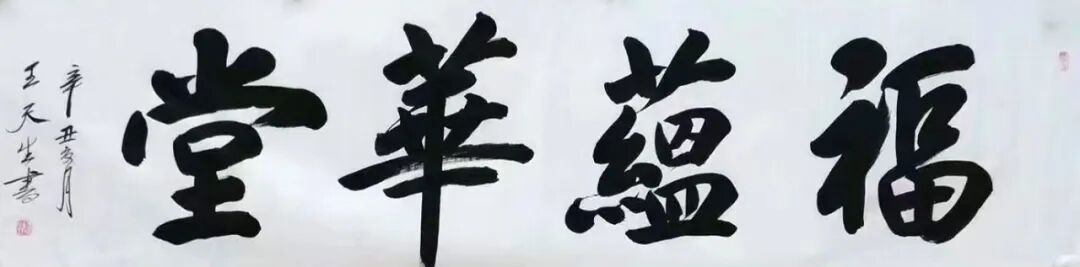 福蘊華堂
辛丑亥月
王天生書